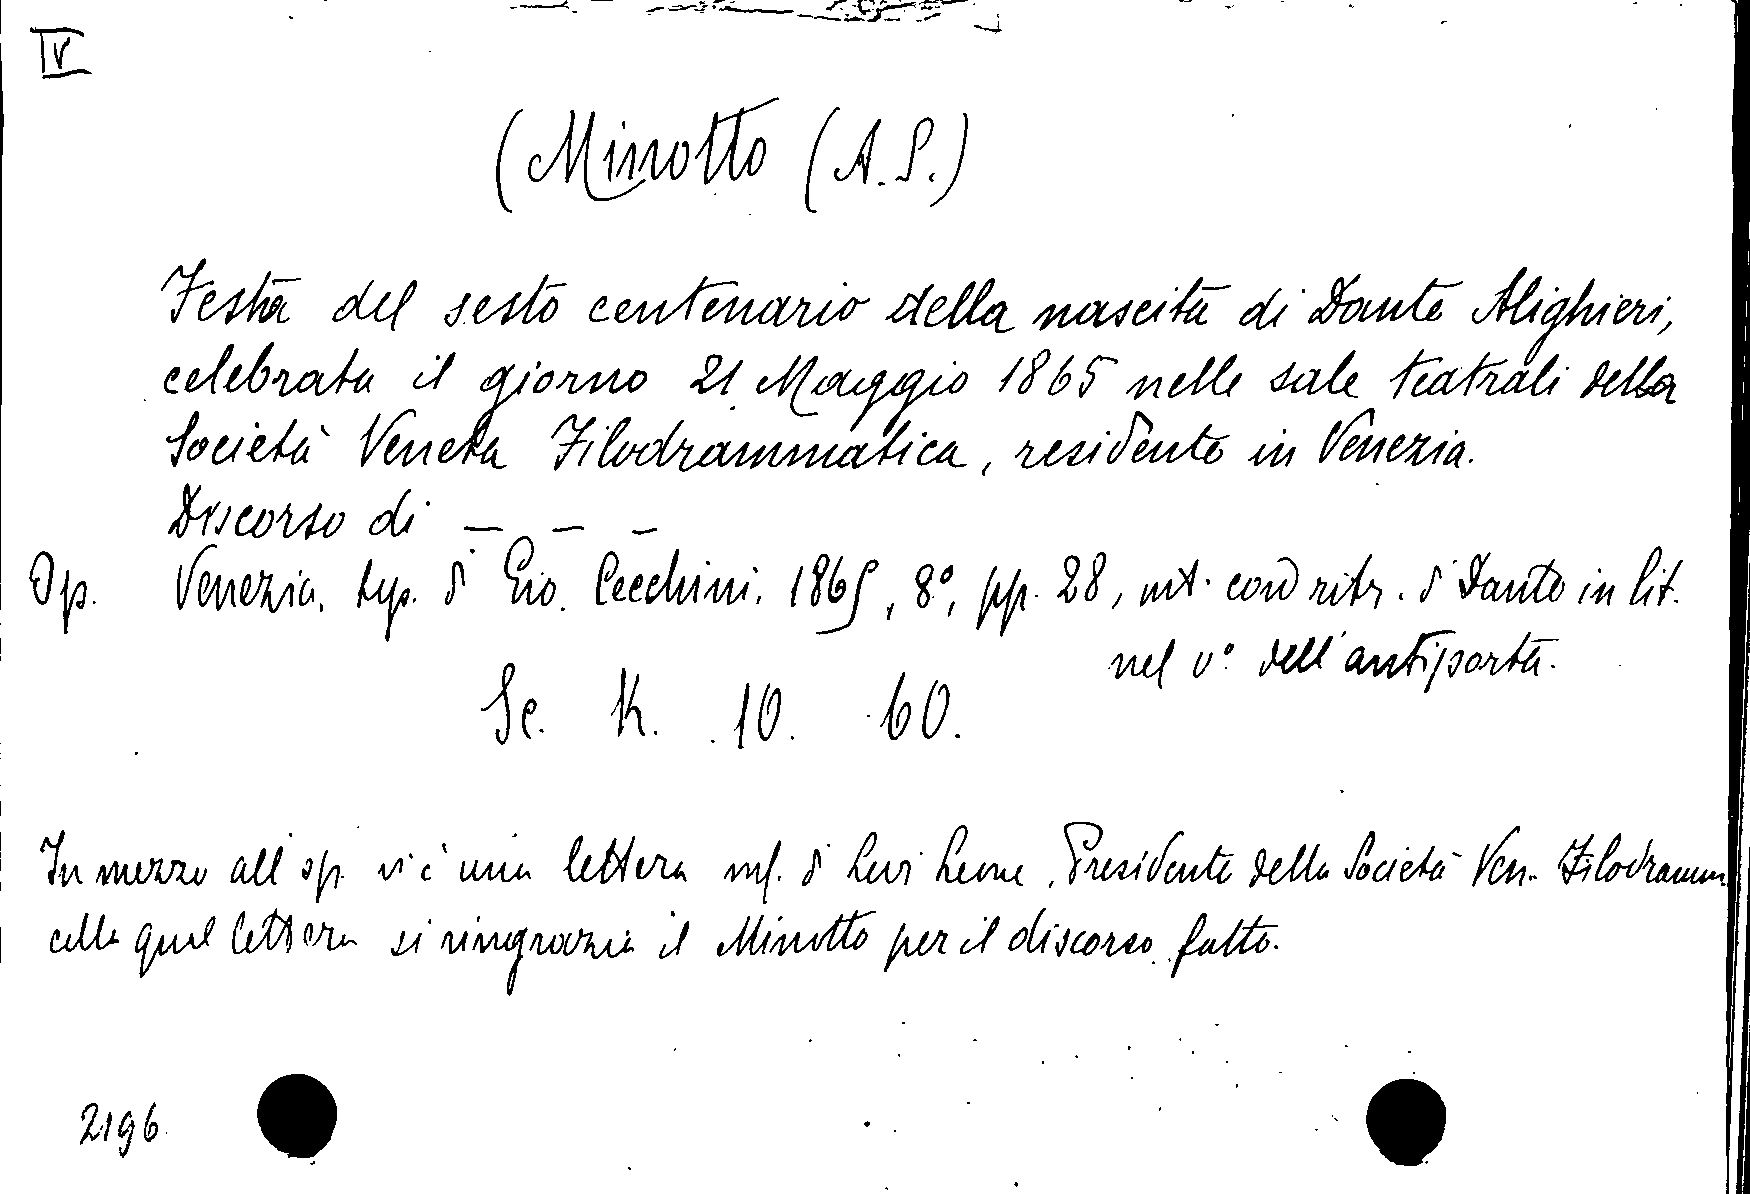 IV
(Minotto (A. S.)
Festa del sesto centenario della nascita di Dante Alighieri,
celebrata il giorno 21 Maggio 1865 nelle sale teatrali della
Società Veneta Filodrammatica, residente in Venezia.
Discorso di — — —
Op. Venezia, typ. di Gio. Cecchini, 1865, 8°, pp. 28, int. con ritr. di Dante in lit.
nel v° dell'antiporta.
Sc. K. 10. 60.
In mezzo all'op. vi è una lettera mf. di Levi Leone, Presidente della Società Ven. Filodramm.
colla qual lettera si ringrazia il Minotto per il discorso fatto.
2196